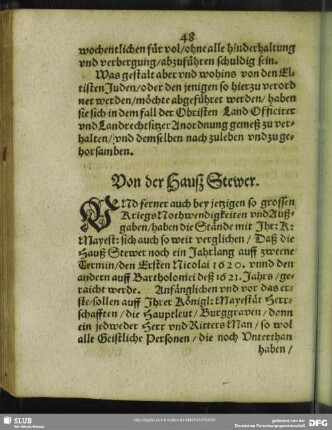 48
wochentlichen für vol/ohne alle hinderhaltung
vnd verbergung/abzuführen schuldig sein.
Was gestalt aber vnd wohins von den El-
tisten Juden/oder den jenigen so hierzu verord
net werden/möchte abgeführet werden/haben
sie sich in dem fall der Obristen Land Officirer
vnd Landrechtsitzer Anordnung gemeß zu ver-
halten/vnd demselben nach zuleben vnd zu ge-
horsamben.
Von der Hauß Stewer.
VNd ferner auch bey jetzigen so grossen
Kriegs Nothwendigkeiten vnd Auß-
gaben/haben die Stände mit Ihr: K:
Mayest: sich auch so weit verglichen/ Daß die
Hauß Stewer noch ein Jahrlang auff zweene
Termin/den Ersten Nicolai 1620. vnnd den
andern auff Bartholomei deß 1621. Jahrs/ge-
raicht werde. Anfänglichen vnd vor das er-
ste/sollen auff Ihrer Königl: Mayestät Herr-
schafften/ die Hauptleut/ Burggraven/ donn
ein jedweder Herr vnd Ritters Man/ so wol
alle Geistliche Personen/ die noch Vnterthan
haben/
SLUB
Wir führen Wissen.
http://digital.slub-dresden.de/
gefördert von der
Deutschen Forschungsgemeinschaft
DFG